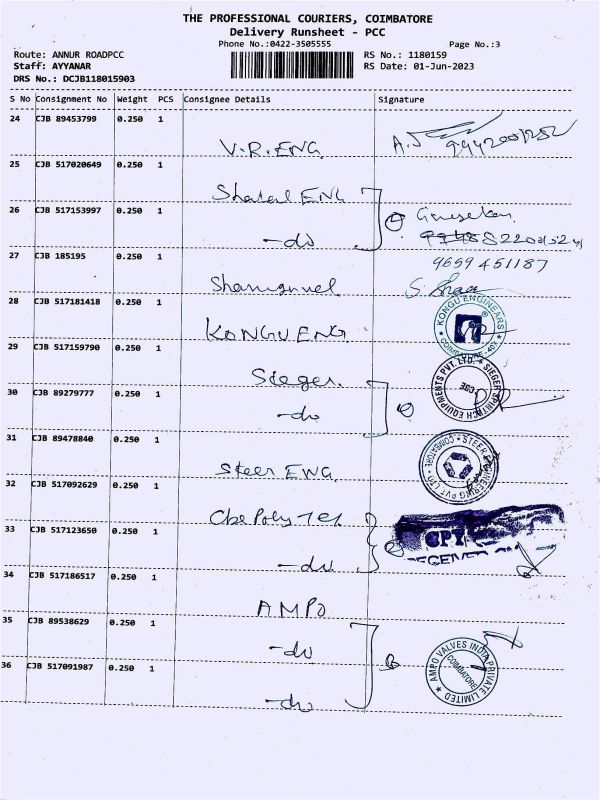 THE PROFESSIONAL COURIERS, COIMBATORE
Delivery Runsheet - PCC
Phone No.:0422-3505555 Page No.:3
Route: ANNUR ROADPCC RS No.: 1180159
Staff: AYYANAR RS Date: 01-Jun-2023
DRS No.: DCJB118015903
S No Consignment No Weight PCS Consignee Details Signature
24 CJB 89453799 0.250 1
V.R.ENG
25 CJB 517020649 0.250 1
ENG
26 CJB 517153997 0.250 1
-do
27 CJB 185195 0.250 1
9659 451187
28 CJB 517181418 0.250 1
KONGU ENG
KONGU ENGINEARS
29 CJB 517159790 0.250 1
Sieger
30 CJB 89279777 0.250 1
-do
SIEGER SPINTECH EQUIPMENTS PVT. LTD.
CBE
31 CJB 89478840 0.250 1
Steer ENG
STEER ENGINEERING PVT LTD COIMBATORE
32 CJB 517092629 0.250 1
Cbe Poly Tex
33 CJB 517123650 0.250 1
-do
34 CJB 517186517 0.250 1
AMPO
35 CJB 89538629 0.250 1
-do
36 CJB 517091987 0.250 1
-do
AMPO VALVES INDIA PRIVATE LIMITED
COIMBATORE